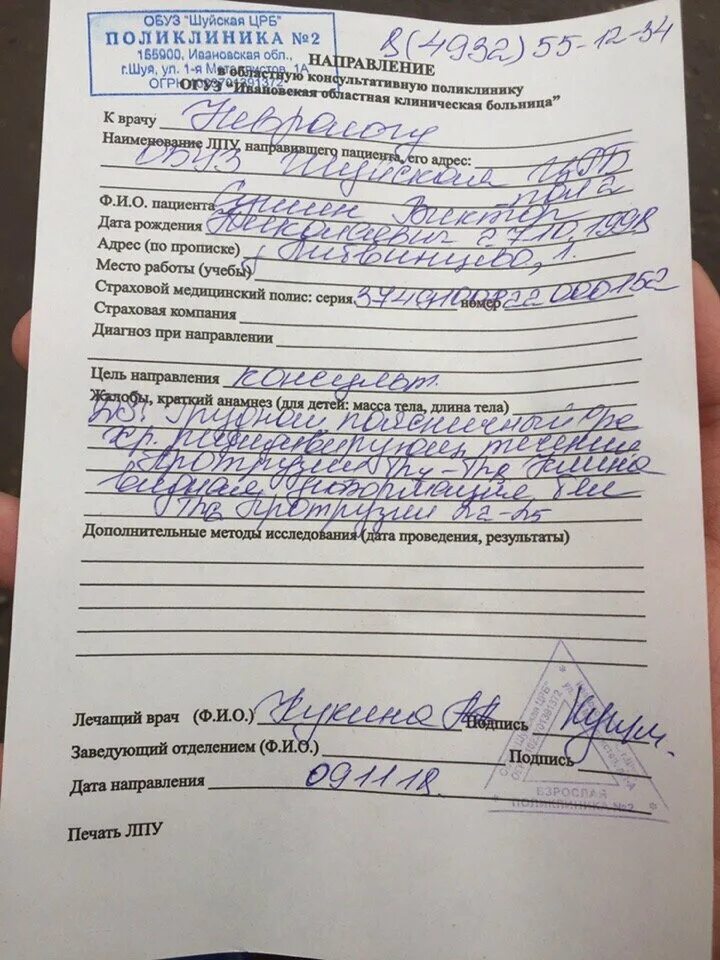 ОБУЗ "Шуйская ЦРБ"
ПОЛИКЛИНИКА №2
155900, Ивановская обл.,
г.Шуя, ул. 1-я Металлистов, 1А
8(4932)55-12-34
НАПРАВЛЕНИЕ
в областную консультативную поликлинику
ОГУЗ "Ивановская областная клиническая больница"
К врачу Неврологу
Наименование ЛПУ, направившего пациента, его адрес:
ОБУЗ Шуйская ЦРБ
пол 2
Ф.И.О. пациента Виктор
Дата рождения Николаевич 27.10.1998
Адрес (по прописке) Литвинцево, 1.
Место работы (учебы)
Страховой медицинский полис: серия номер
Страховая компания
Диагноз при направлении
Цель направления консульт.
Жалобы, краткий анамнез (для детей: масса тела, длина тела)
DS: Грудной поясничный
хр. рецидивирующ. течения
Протрузии
видная деформация тел
Протрузии
Дополнительные методы исследования (дата проведения, результаты)
Лечащий врач (Ф.И.О.) Кукина Подпись
Заведующий отделением (Ф.И.О.) Подпись
Дата направления 09.11.18.
ВЗРОСЛАЯ
ПОЛИКЛИНИКА №2
Печать ЛПУ